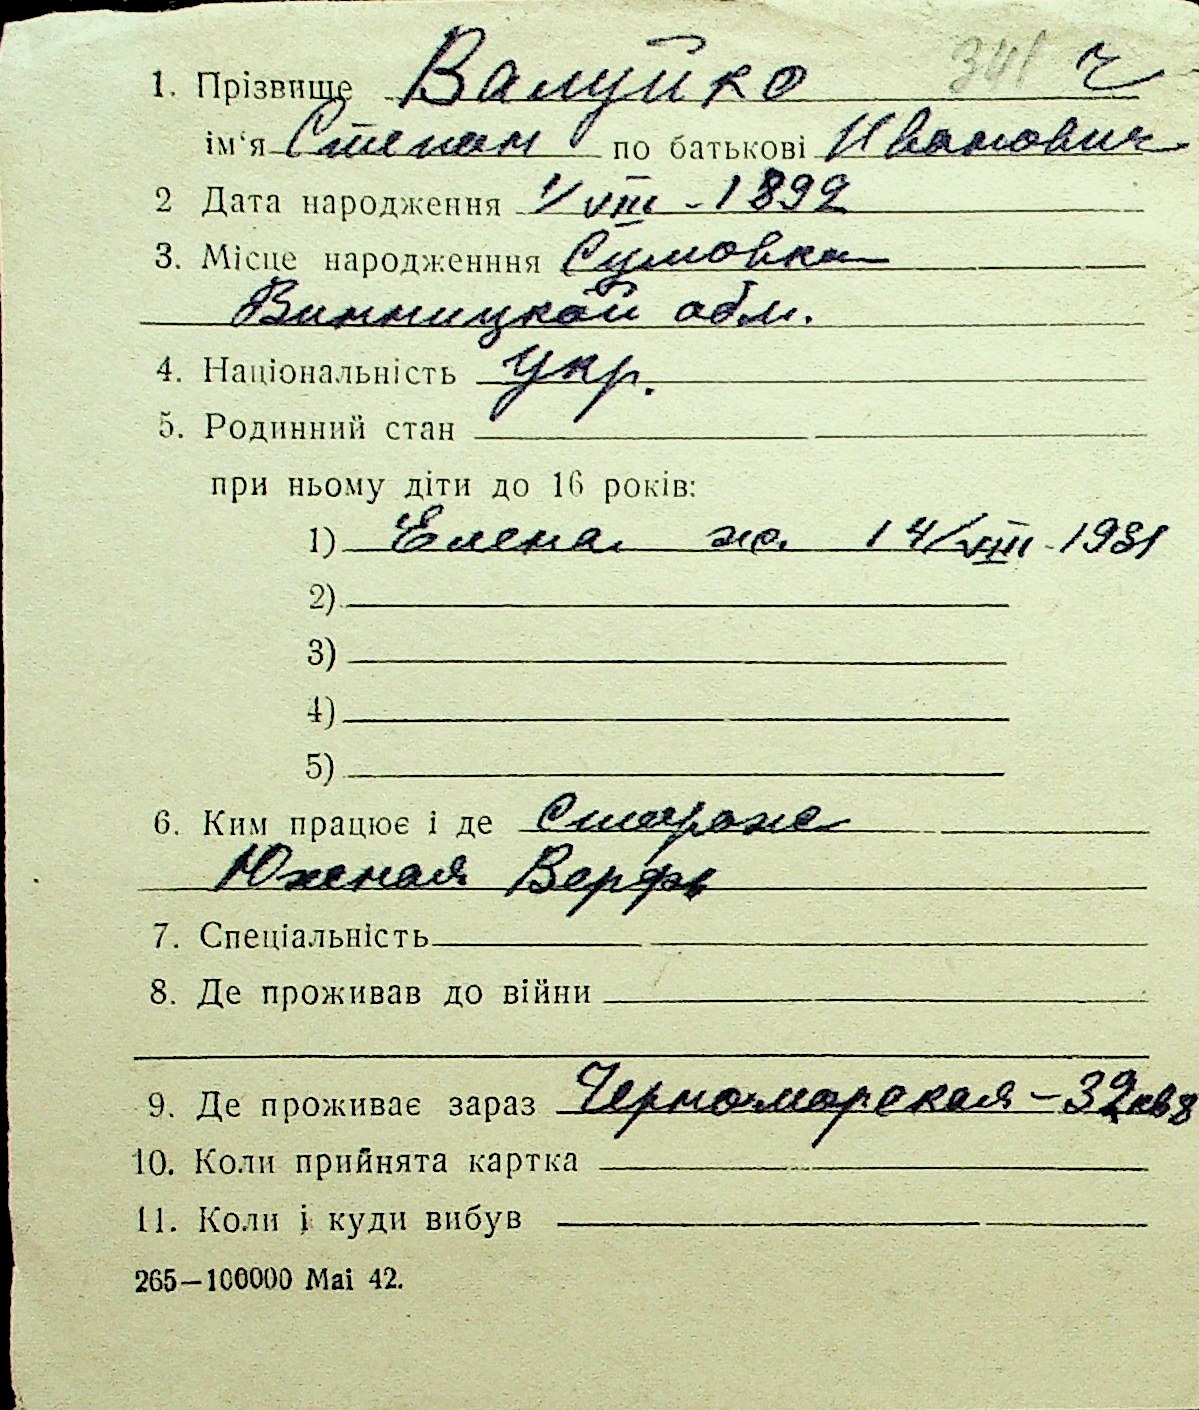 341 ч
1. Прізвище Валуйко
ім‘я Степан по батькові Иванович
2 Дата народження 1/VIII - 1892
3. Місце народженння Сумовка
Винницкой обл.
4. Національність Укр.
5. Родинний стан
при ньому діти до 16 років:
1) Елена ж. 14/VIII - 1931
2)
3)
4)
5)
6. Ким працює і де Сторож
Южная Верфь
7. Спеціальність
8. Де проживав до війни
9. Де проживає зараз Черноморская - 32 кв 8
10. Коли прийнята картка
11. Коли і куди вибув
265—100000 Mai 42.